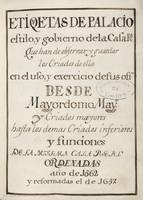 ETIQUETAS DE PALACIO
estilo, y gobierno de la Casa Rl.
Que han de observar y guardar
los Criados de ella
en el uso, y exercicio de sus ofs.
DESDE
Mayordomo May.
y Criados mayores
hasta los demas Criados inferiores
y funciones
DE LA MISSMA CASA REAL
ORDENADAS
año de 1562
y reformadas el de 1652